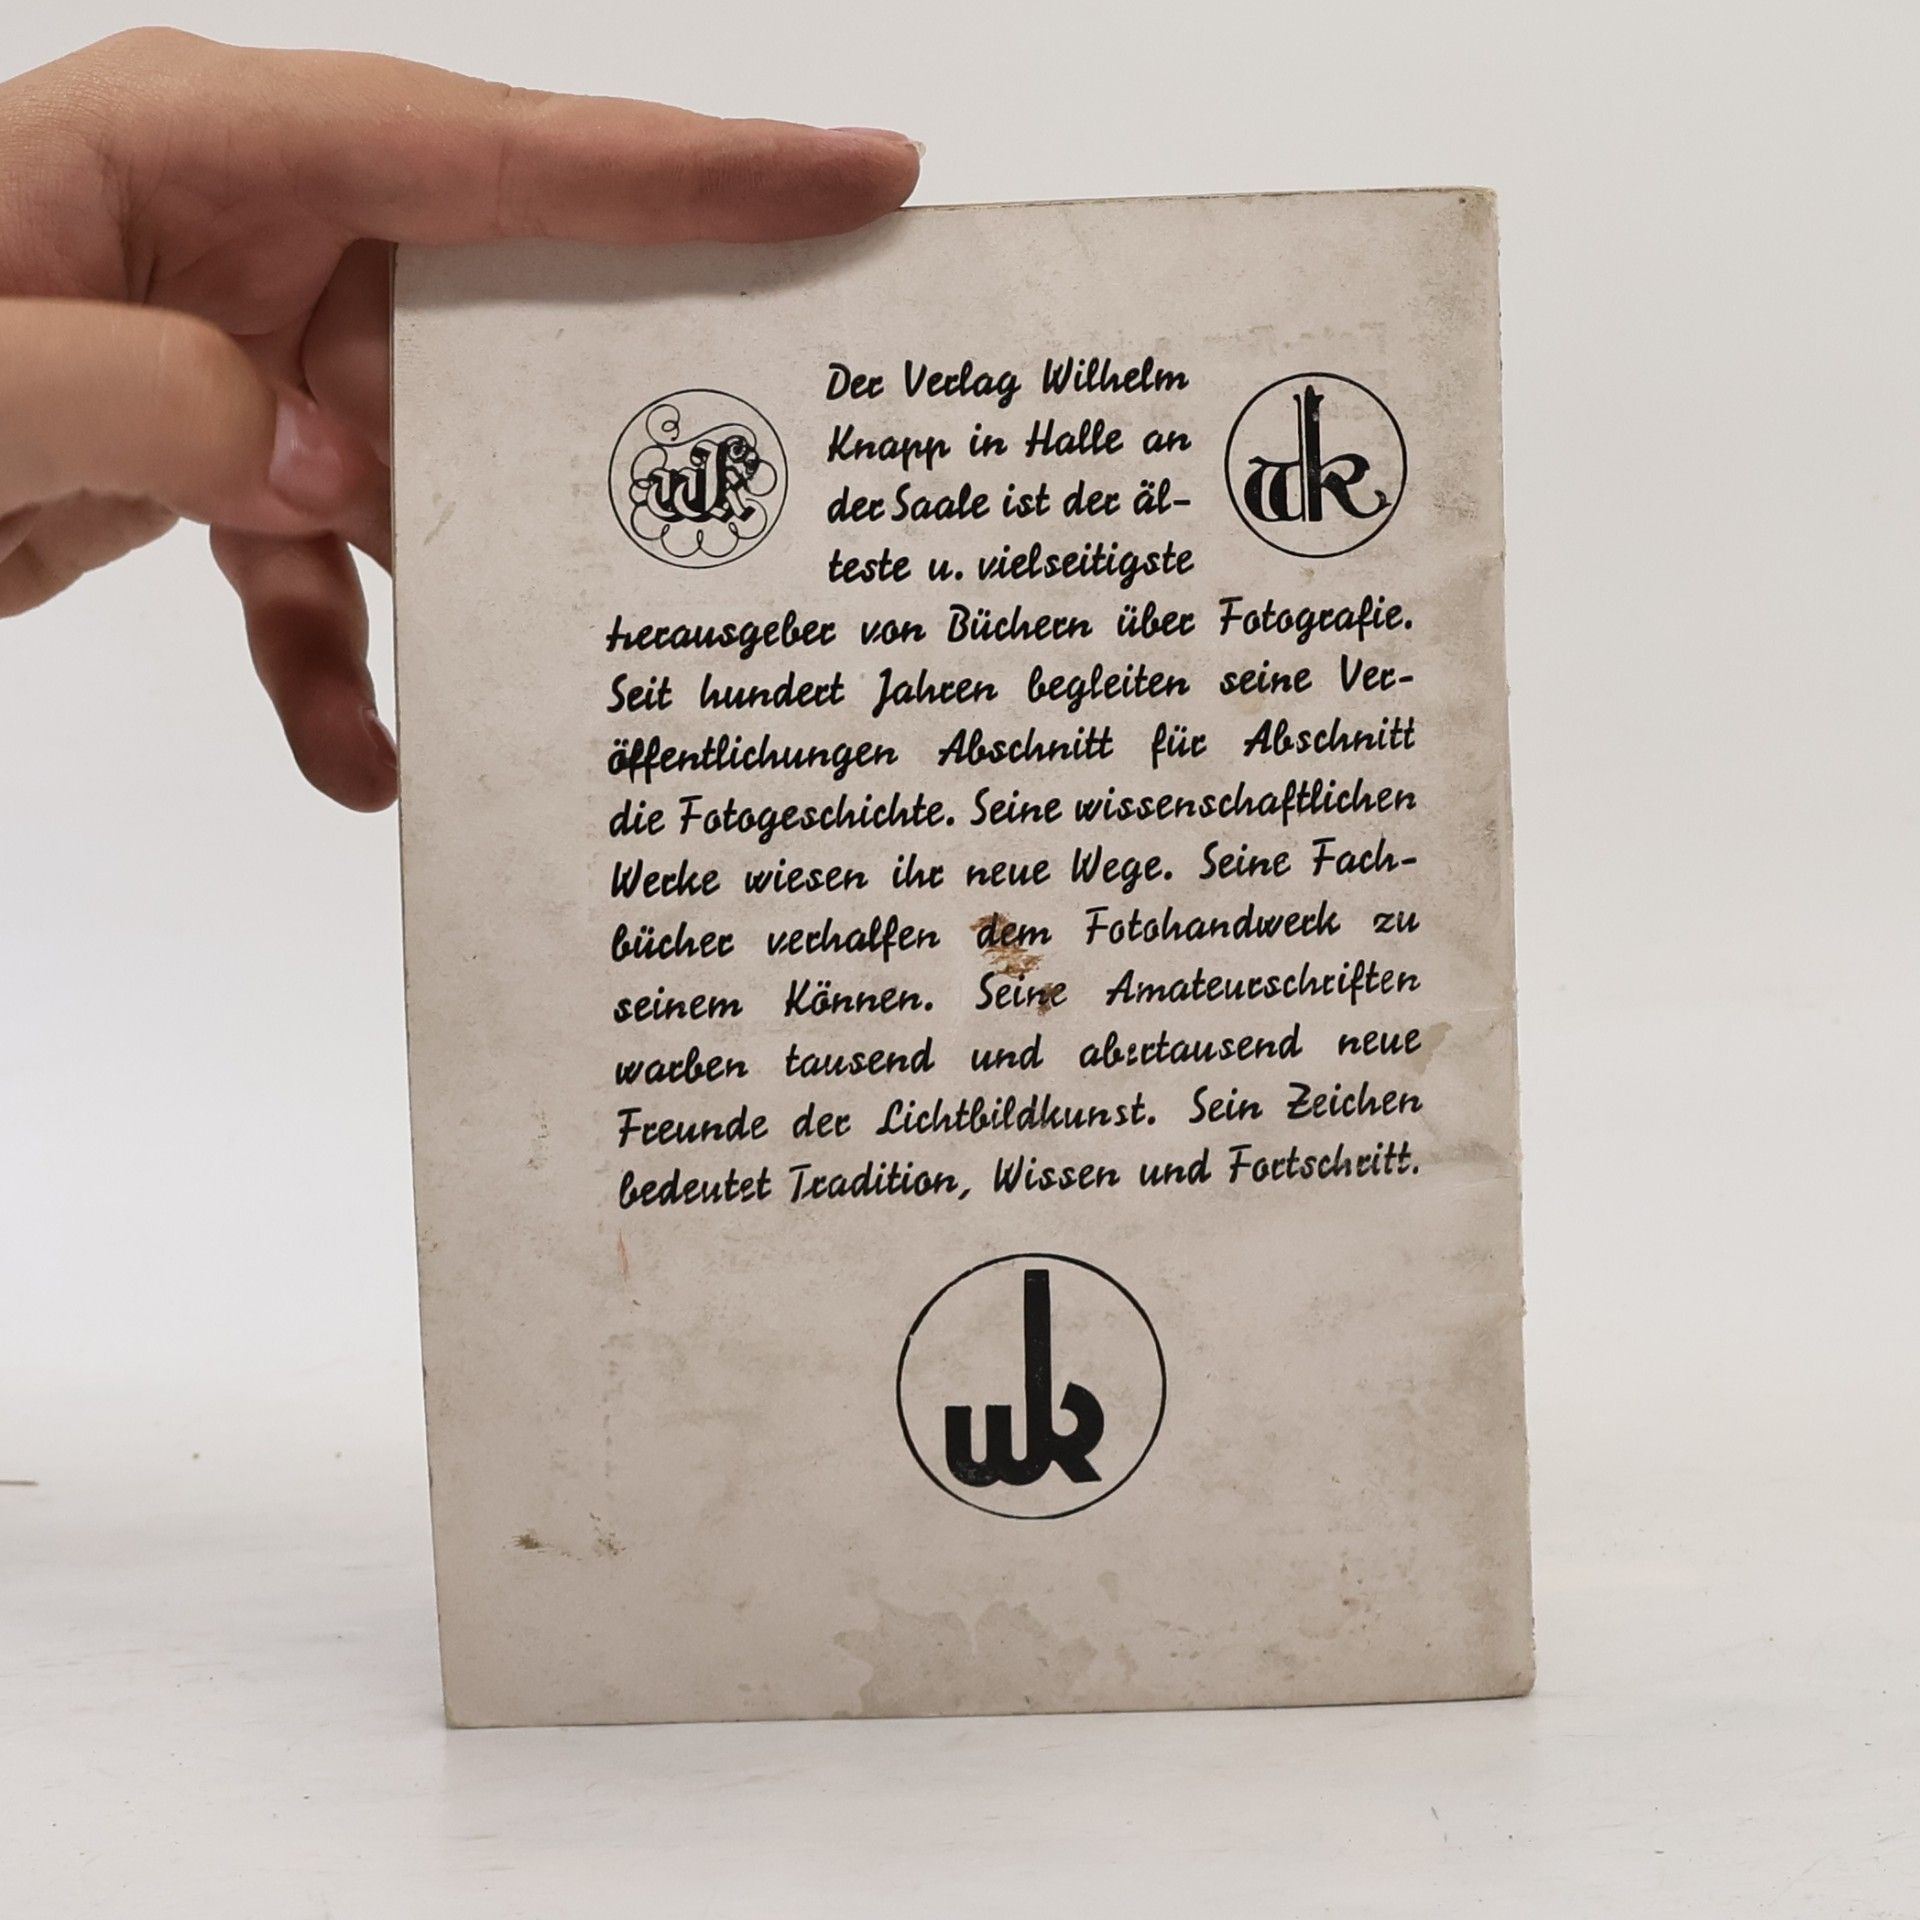 wk
wk
Der Verlag Wilhelm
Knapp in Halle an
der Saale ist der äl-
teste u. vielseitigste
Herausgeber von Büchern über Fotografie.
Seit hundert Jahren begleiten seine Ver-
öffentlichungen Abschnitt für Abschnitt
die Fotogeschichte. Seine wissenschaftlichen
Werke wiesen ihr neue Wege. Seine Fach-
bücher verhalfen dem Fotohandwerk zu
seinem Können. Seine Amateurschriften
warben tausend und abertausend neue
Freunde der Lichtbildkunst. Sein Zeichen
bedeutet Tradition, Wissen und Fortschritt.
wk